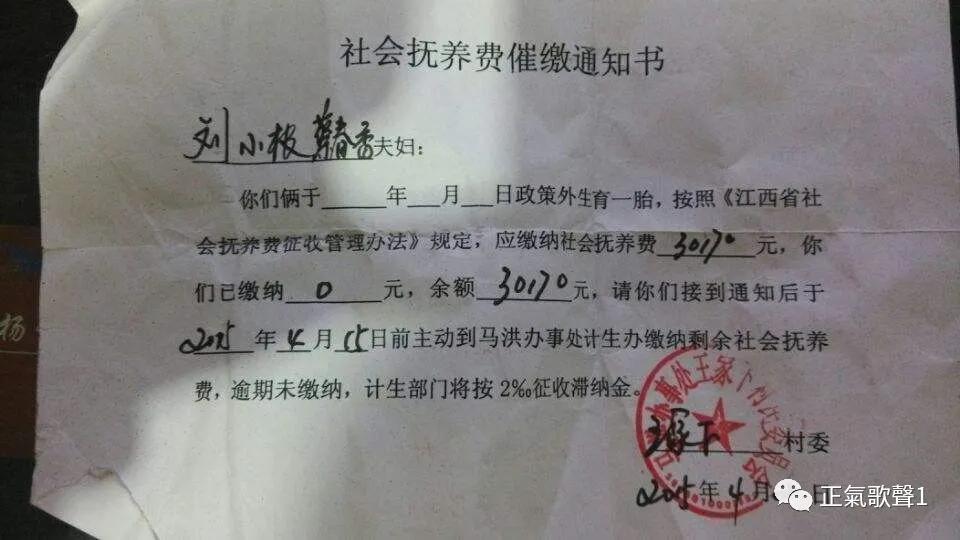 社会抚养费催缴通知书
刘小板 春香夫妇：
你们俩于 年 月 日政策外生育一胎，按照《江西省社
会抚养费征收管理办法》规定，应缴纳社会抚养费 30170 元，你
们已缴纳 0 元，余额 30170 元，请你们接到通知后于
2015 年 4 月 15 日前主动到马洪办事处计生办缴纳剩余社会抚养
费，逾期未缴纳，计生部门将按2‰征收滞纳金。
王家下 村委
2015 年 4 月 日
办事处王家下村民委员会
杨
正氣歌聲1